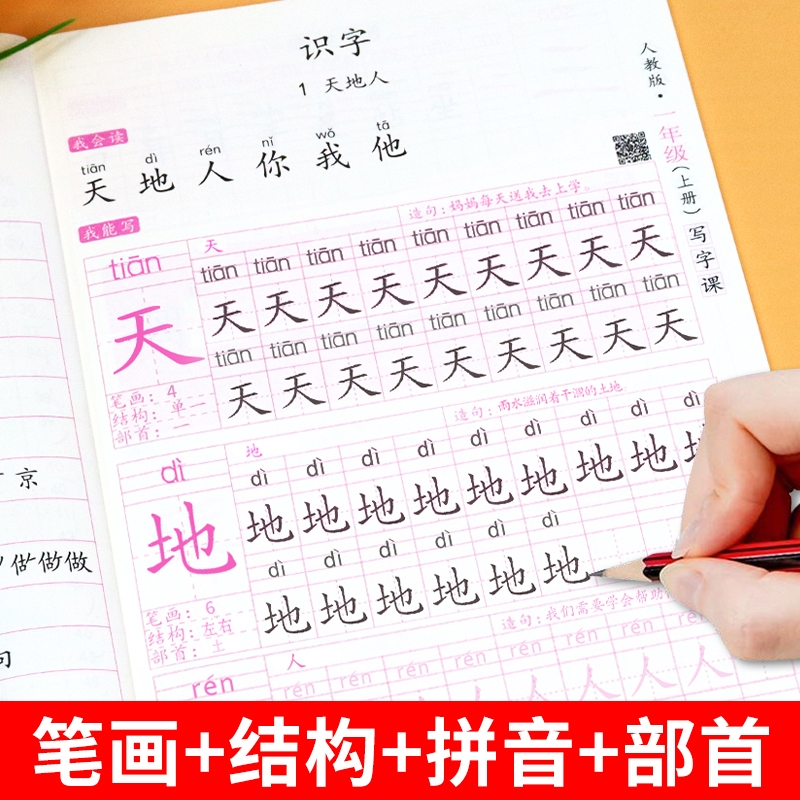 识字
1 天地人
我会读
tiān dì rén nǐ wǒ tā
天 地 人 你 我 他
人教版·一年级(上册)写字课
我能写
tiān
天
造句:妈妈每天送我去上学。
tiān tiān tiān tiān tiān tiān tiān tiān tiān
天 天 天 天 天 天 天 天 天
tiān tiān tiān tiān tiān tiān tiān tiān tiān
天 天 天 天 天 天 天 天 天
天
笔画:4
结构:单一
部首:一
dì
地
造句:雨水滋润着干涸的土地
dì dì dì dì dì dì dì dì dì
地 地 地 地 地 地 地 地 地
dì dì dì dì dì dì
地 地 地 地 地 地
地
笔画:6
结构:左右
部首:土
rén
人
造句:我们需要学会帮助
rén rén rén rén rén rén rén rén
人 人 人 人
京
做做做
句
笔画+结构+拼音+部首